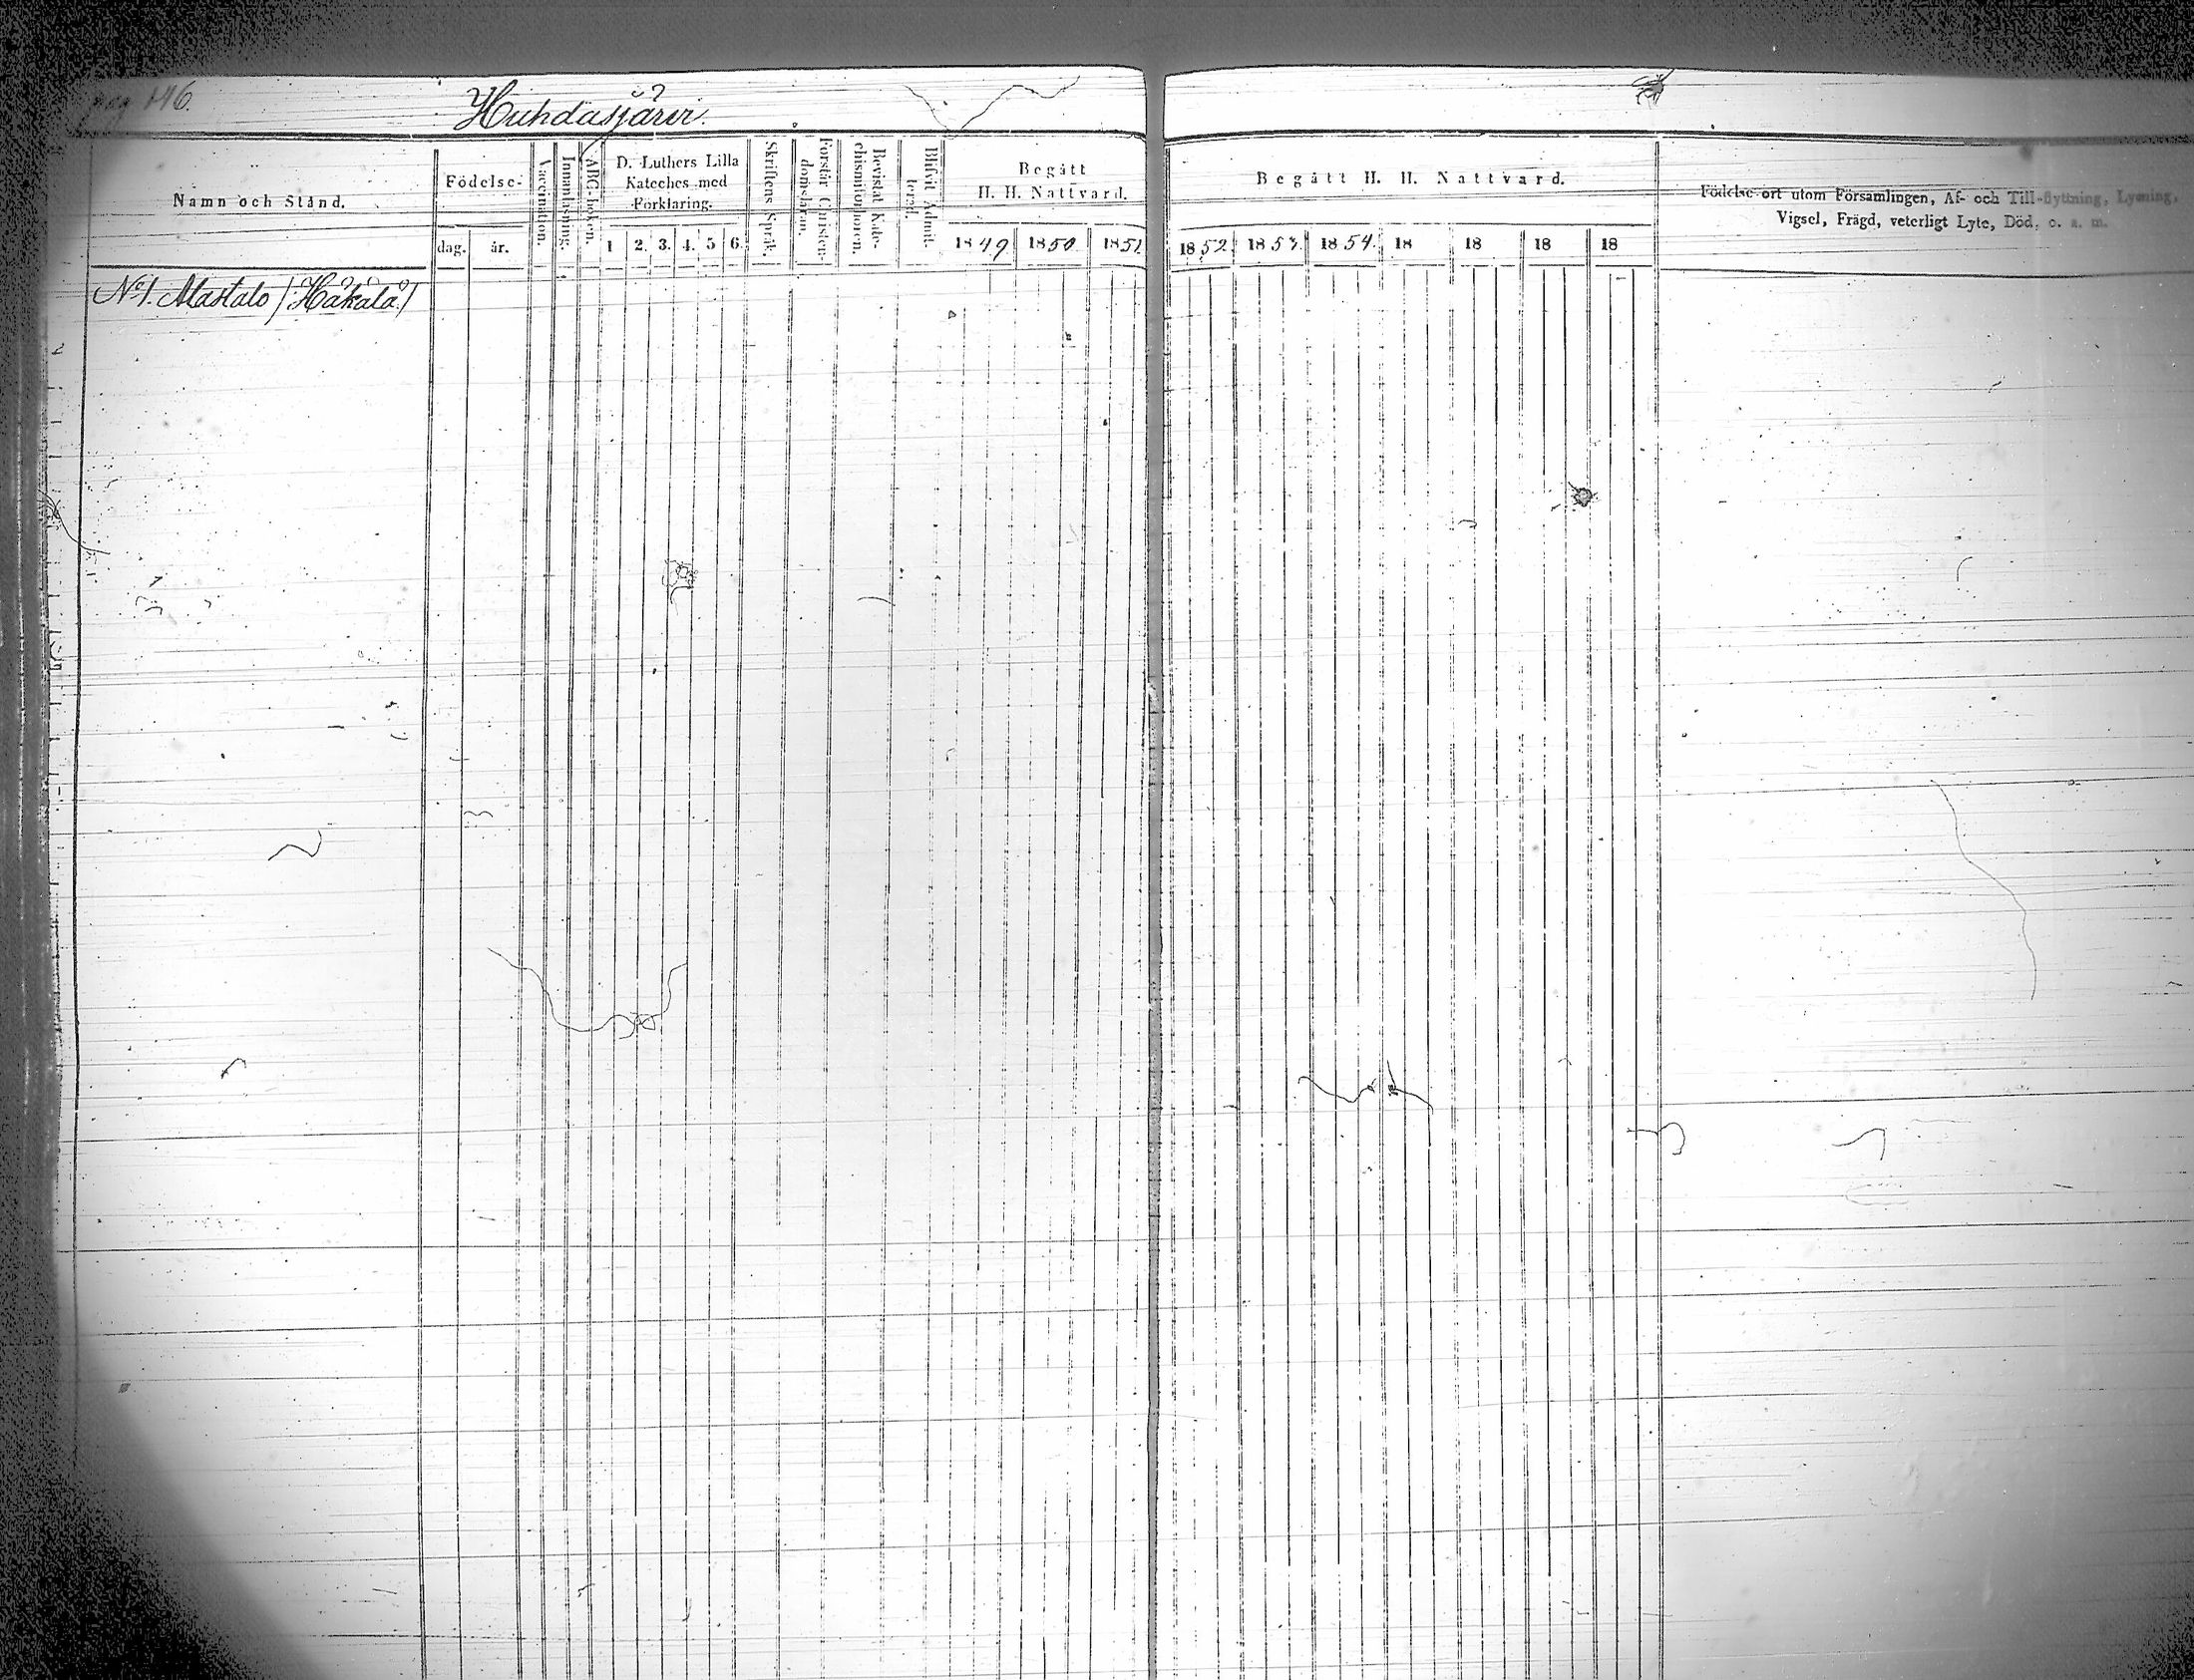 pag 146.
Huhdasjärvi.
Namn och Stånd.
Födelse-
dag. år.
Vaccination.
Innanläsning.
ABC-boken.
D. Luthers Lilla
Kateches med
Förklaring.
1 2. 3. 4. 5 6.
Skriftens Språk.
Förstår Christen-
domsläran.
Bevistat Kate-
chismiförhören.
Blifvit Admit-
terad.
Begått
H. H. Nattvard.
1849 1850 1851
Begått H. H. Nattvard.
1852. 1853. 1854. 18 18 18 18
Födelse-ort utom Församlingen, Af- och Till-flyttning, Lysning,
Vigsel, Frägd, veterligt Lyte, Död, o. a. m.
No 1. Alastalo /:Hakala:/